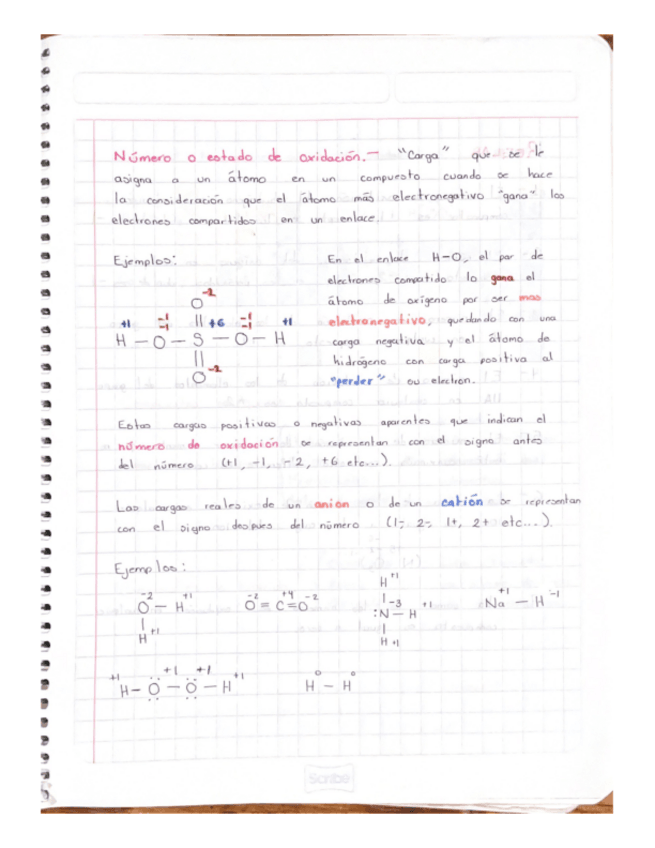 Número o estado de oxidación.- "Carga" que se le
asigna a un átomo en un compuesto cuando se hace
la consideración que el átomo más electronegativo "gana" los
electrones compartidos en un enlace.
Ejemplos:
O -2
+1 -1 || +6 -1 +1
-1 -1
H — O — S — O — H
||
O -2
En el enlace H-O, el par de
electrones compatido lo gana el
átomo de oxígeno por ser mas
electronegativo, quedando con una
carga negativa y el átomo de
hidrógeno con carga positiva al
"perder" su electron.
Estas cargas positivas o negativas aparentes que indican el
número de oxidación se representan con el signo antes
del número (+1, -1, -2, +6 etc...).
Las cargas reales de un anion o de un catión se representan
con el signo despues del número (1-, 2-, 1+, 2+ etc...).
Ejemplos:
-2 +1
O — H
|
H +1
-2 +4 -2
O = C = O
H +1
| -3 +1
:N — H
|
H +1
+1 -1
Na — H
+1 +1 +1 +1
H — O — O — H
0 0
H — H
Scribe